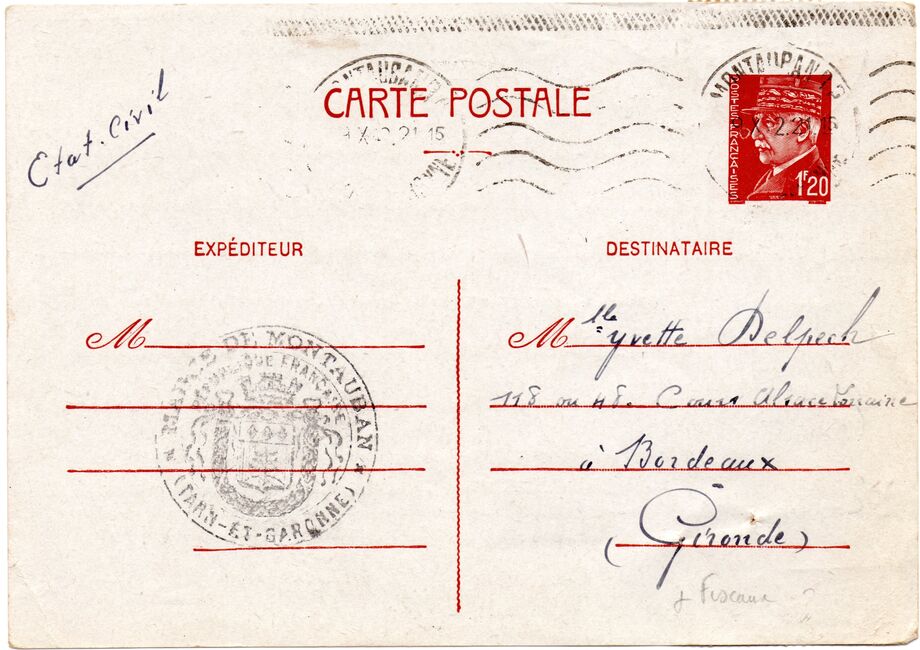 Etat-Civil
CARTE POSTALE
POSTES FRANÇAISES
1F20
EXPÉDITEUR
DESTINATAIRE
M
MAIRIE DE MONTAUBAN
RÉPUBLIQUE FRANÇAISE
(TARN-ET-GARONNE)
Mlle Yvette Delpech
118 ou 48. Cours Alsace Lorraine
à Bordeaux
(Gironde)